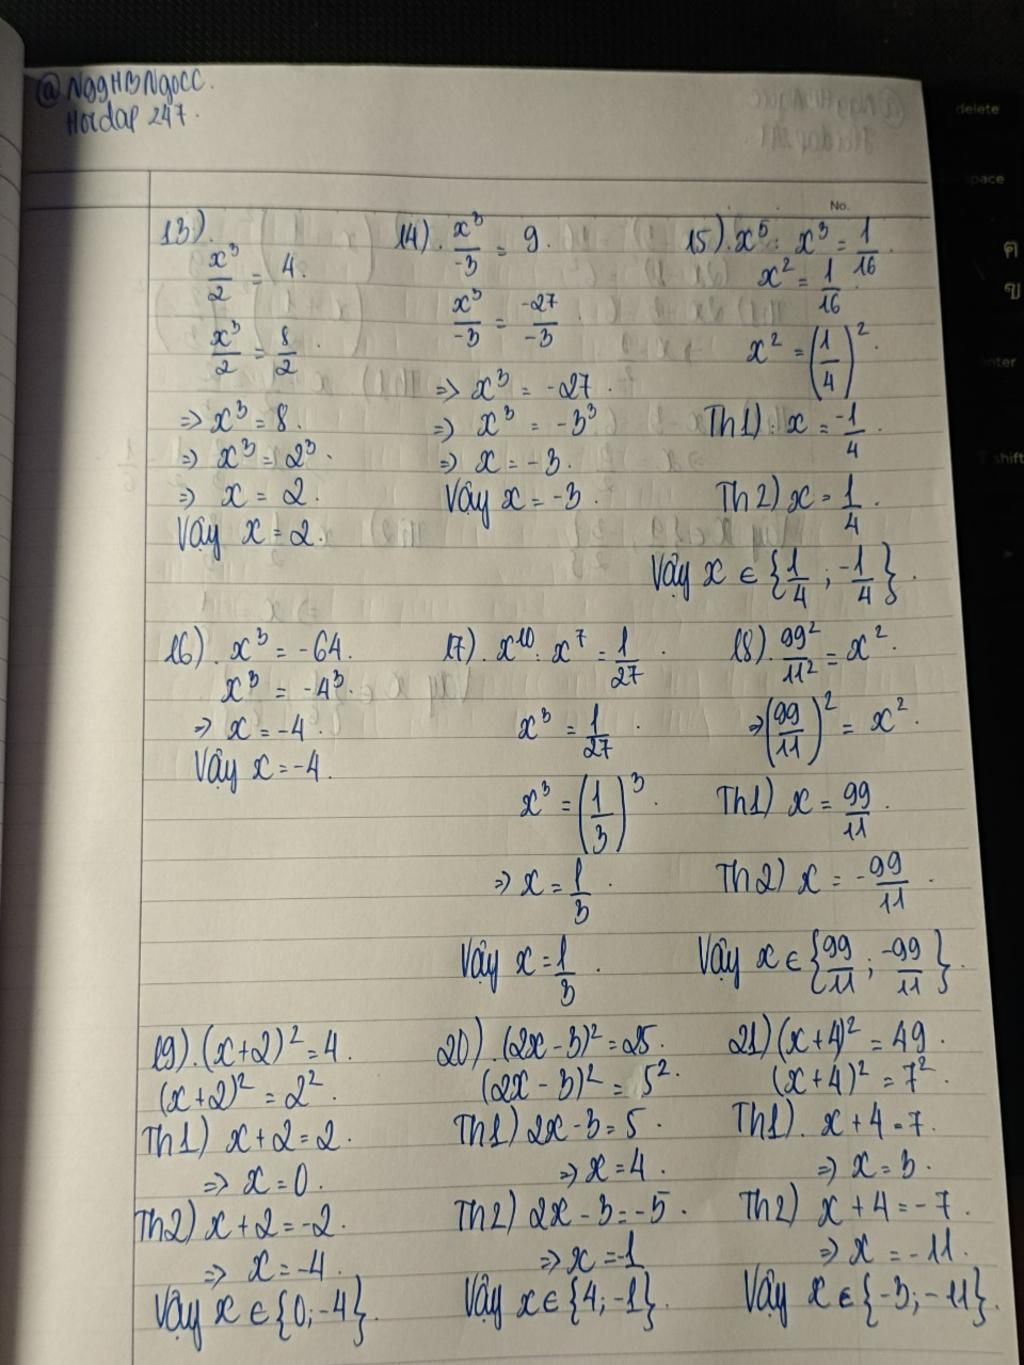 @NggHBNgocc.
Hoidap 247.
delete
space
enter
shift
No.
13).
x³/2 = 4.
x³/2 = 8/2.
=> x³ = 8.
=> x³ = 2³.
=> x = 2.
Vậy x = 2.
14). x³/-3 = 9.
x³/-3 = -27/-3.
=> x³ = -27.
=> x³ = -3³
=> x = -3.
Vậy x = -3.
15). x⁵ : x³ = 1/16.
x² = 1/16.
x² = (1/4)².
Th1) : x = -1/4.
Th2) x = 1/4.
Vậy x ∈ {1/4 ; -1/4}.
16). x³ = -64.
x³ = -4³.
=> x = -4.
Vậy x = -4.
17). x¹⁰ : x⁷ = 1/27.
x³ = 1/27.
x³ = (1/3)³.
=> x = 1/3.
Vậy x = 1/3.
18). 99²/11² = x².
=> (99/11)² = x².
Th1) x = 99/11.
Th2) x = -99/11.
Vậy x ∈ {99/11 ; -99/11}.
19). (x+2)² = 4.
(x+2)² = 2².
Th1) x+2 = 2.
=> x = 0.
Th2) x+2 = -2.
=> x = -4.
Vậy x ∈ {0; -4}.
20). (2x-3)² = 25.
(2x-3)² = 5².
Th1) 2x-3 = 5.
=> x = 4.
Th2) 2x-3 = -5.
=> x = -1
Vậy x ∈ {4; -1}.
21) (x+4)² = 49.
(x+4)² = 7².
Th1). x+4 = 7.
=> x = 3.
Th2) x+4 = -7.
=> x = -11.
Vậy x ∈ {-3; -11}.